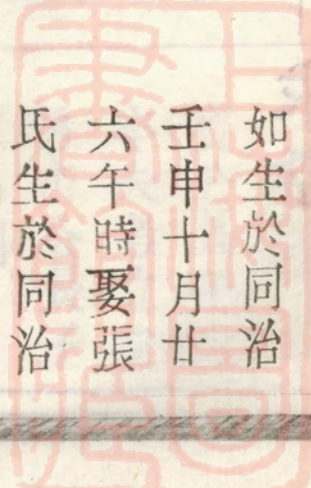 如生於同治
壬申十月廿
六午時娶張
氏生於同治